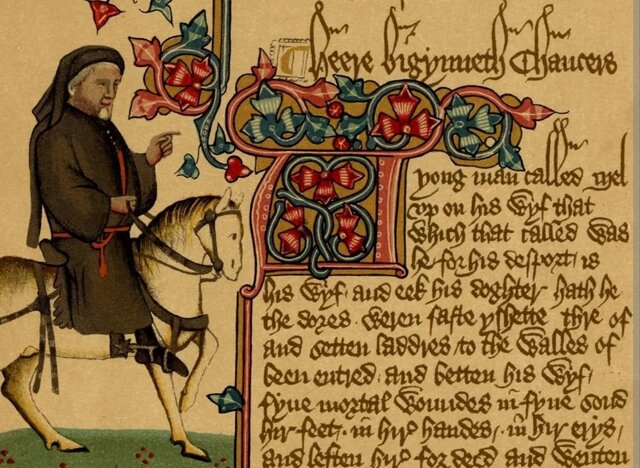 Heere bigynneth Chaucers
A yong man called Mel
vp on his wyf that
which that called was
he · for his desport · is
his wyf · and eek his doghter hath he
the dores weren faste yshette thre of
and setten laddres · to the walles of
been entred · and betten his wyf /
fyue mortal woundes in fyue sond
hir feet · in hir handes · in hir erys ·
and leften hir for deed and wenten